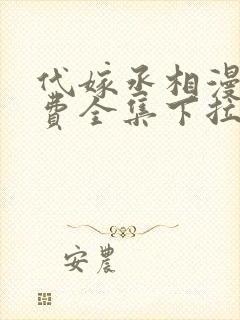 代嫁丞相漫
费全集下拉
安農